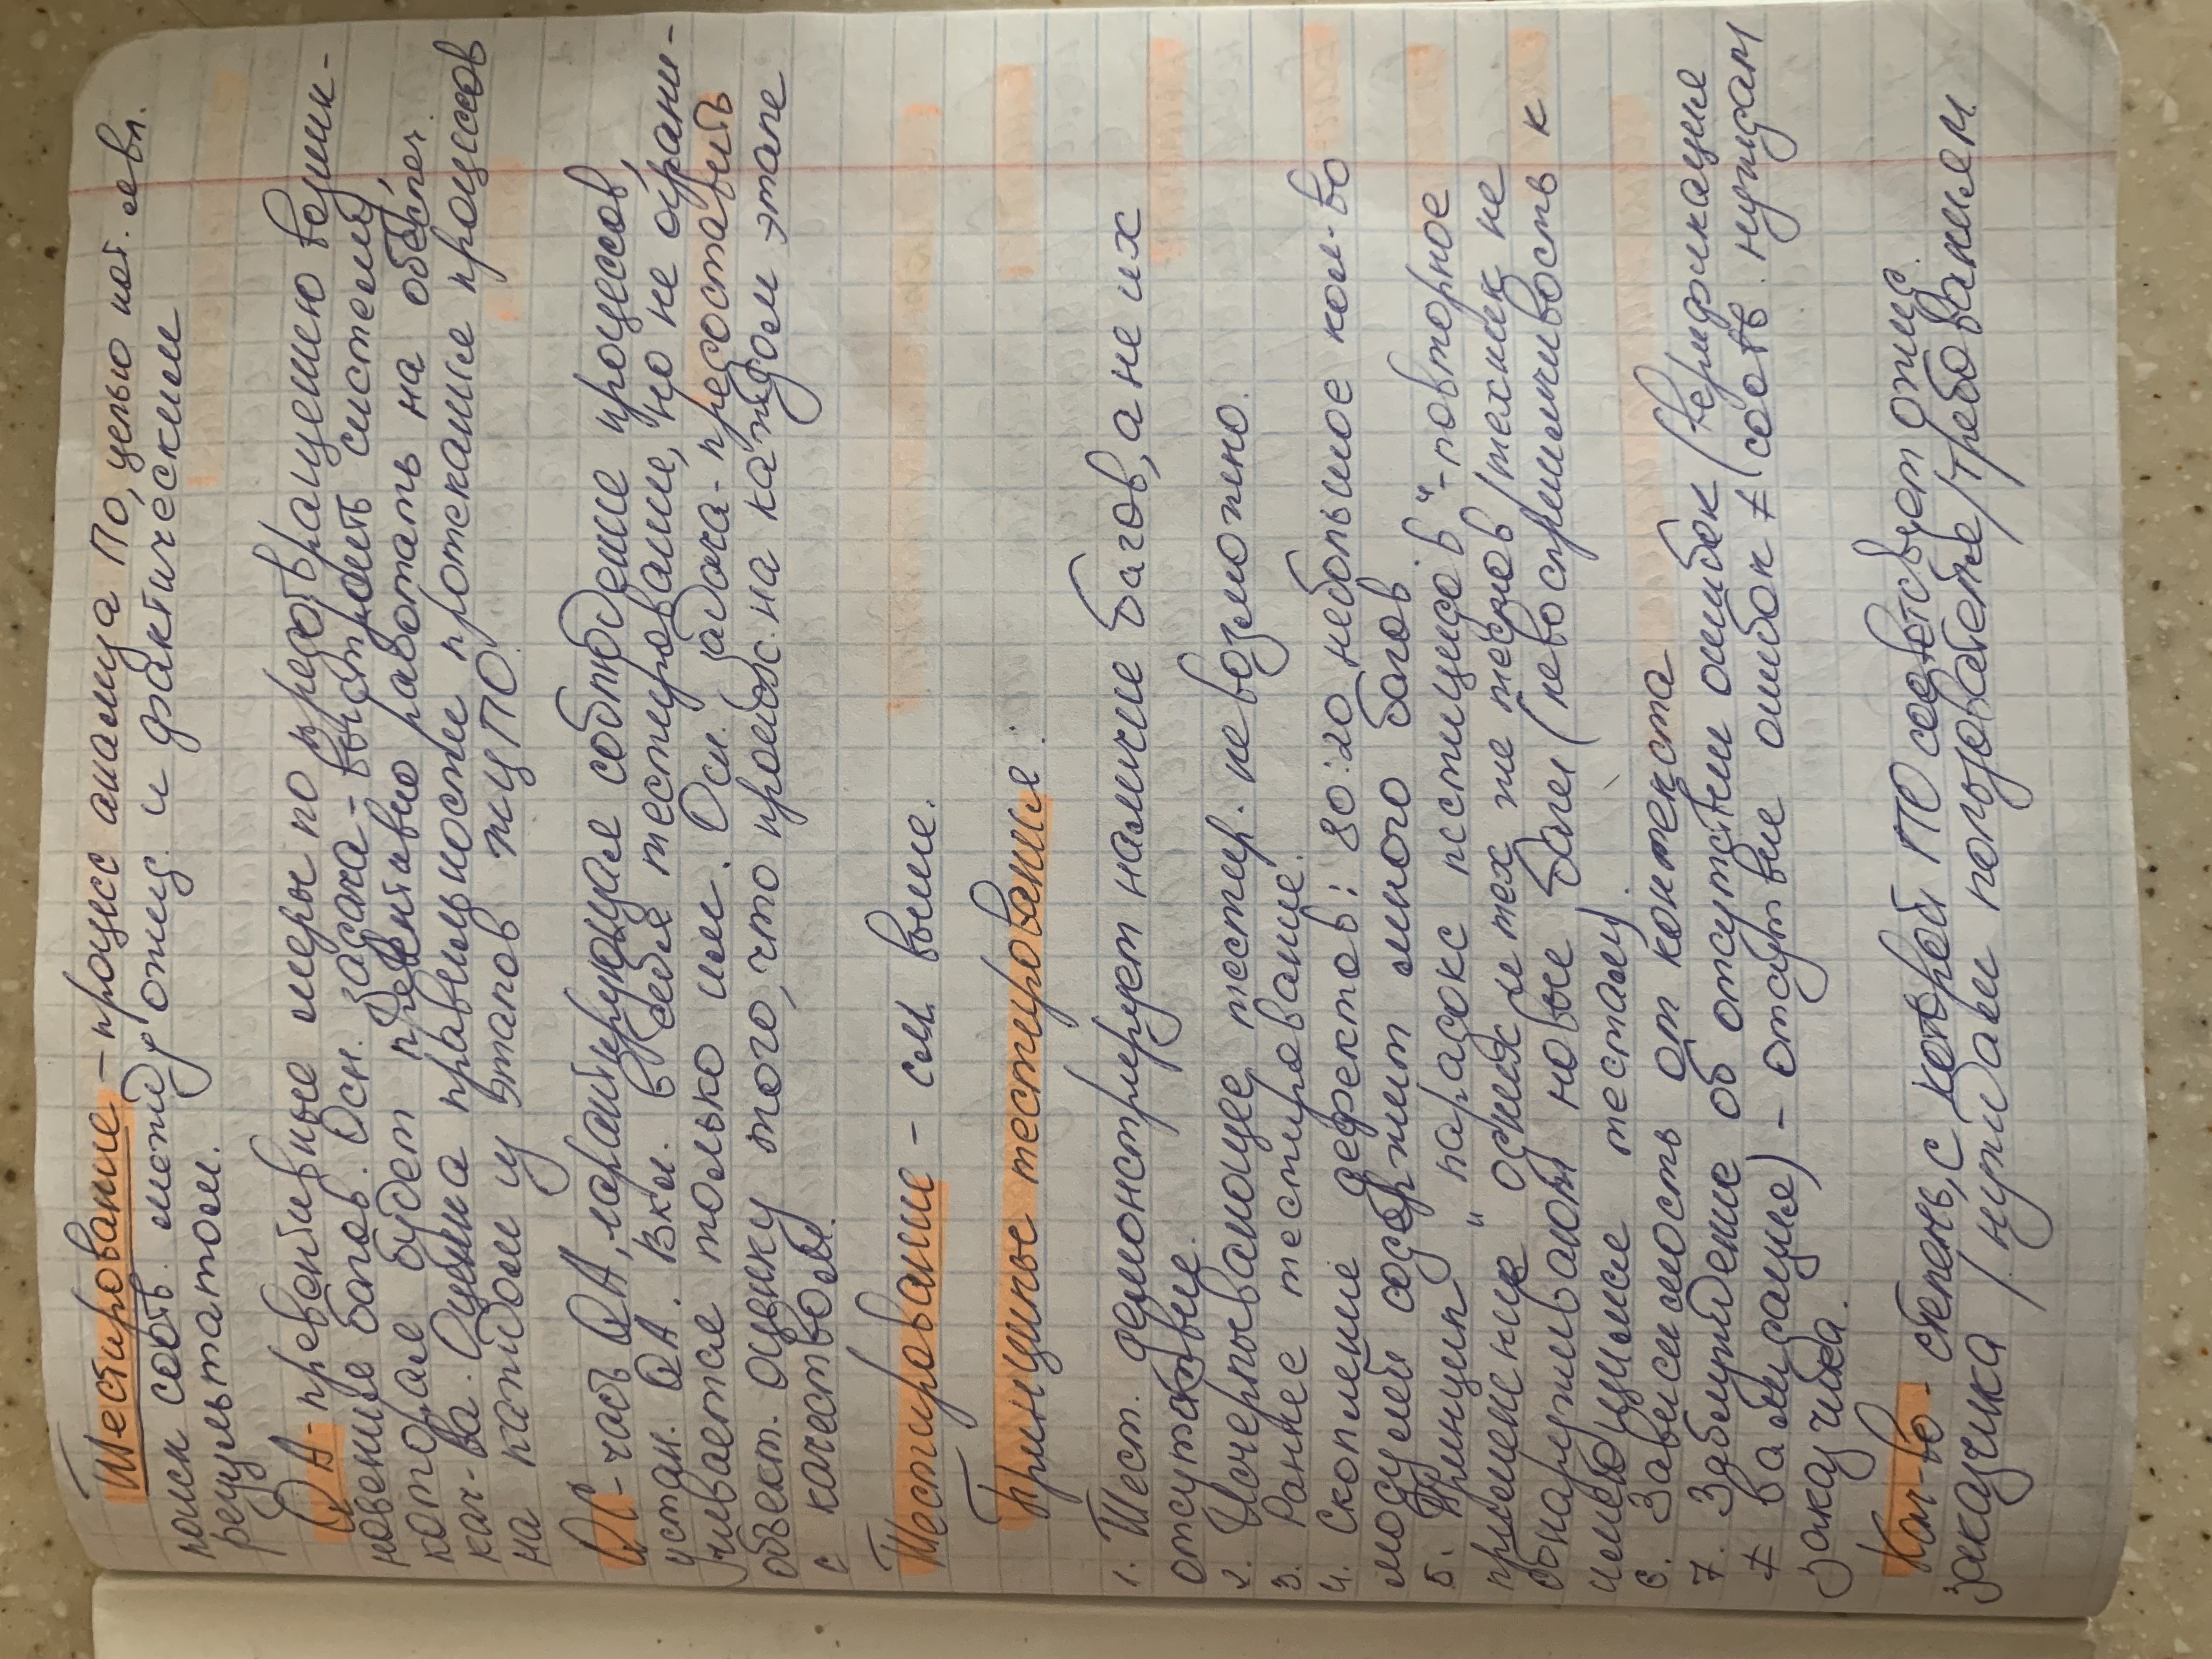 Тестирование – процесс анализа ПО, целью кот. явл.
поиск соотв. между ожид. и фактическим
результатом.
QA - превентивные меры по предотвращению возник-
новения багов. Осн. задача - выстроить систему,
которая будет превентивно работать на обеспеч.
кач-ва. Оценка правильности протекания процессов
на каждом из этапов ЖЦ ПО.
QC - часть QA, гарантирующая соблюдение процессов,
устан. QA. Вкл. в себя тестирование, но не ограни-
чивается только им. Осн. задача - предоставить
объект. оценку того, что происх. на каждом этапе
с качеством.
Тестирование - см. выше.
Принципы тестирования:
1. Тест. демонстрирует наличие багов, а не их
отсутствие.
2. Исчерпывающее тестир. невозможно.
3. Раннее тестирование.
4. Скопление дефектов: 80:20 небольшое кол-во
модулей содержит много багов.
5. Принцип „парадокс пестицидов“ - повторное
применение одних и тех же тестов/техник не
обнаруживают новые баги (невосприимчивость к
имеющимся тестам).
6. Зависимость от контекста
7. Заблуждение об отсутствии ошибок (верификация
≠ валидация) - отсутвие ошибок ≠ соотв. нуждам
заказчика.
Кач-во - степень, с которой ПО соответсвует ожид.
заказчика / нуждам пользователя/требованиям.